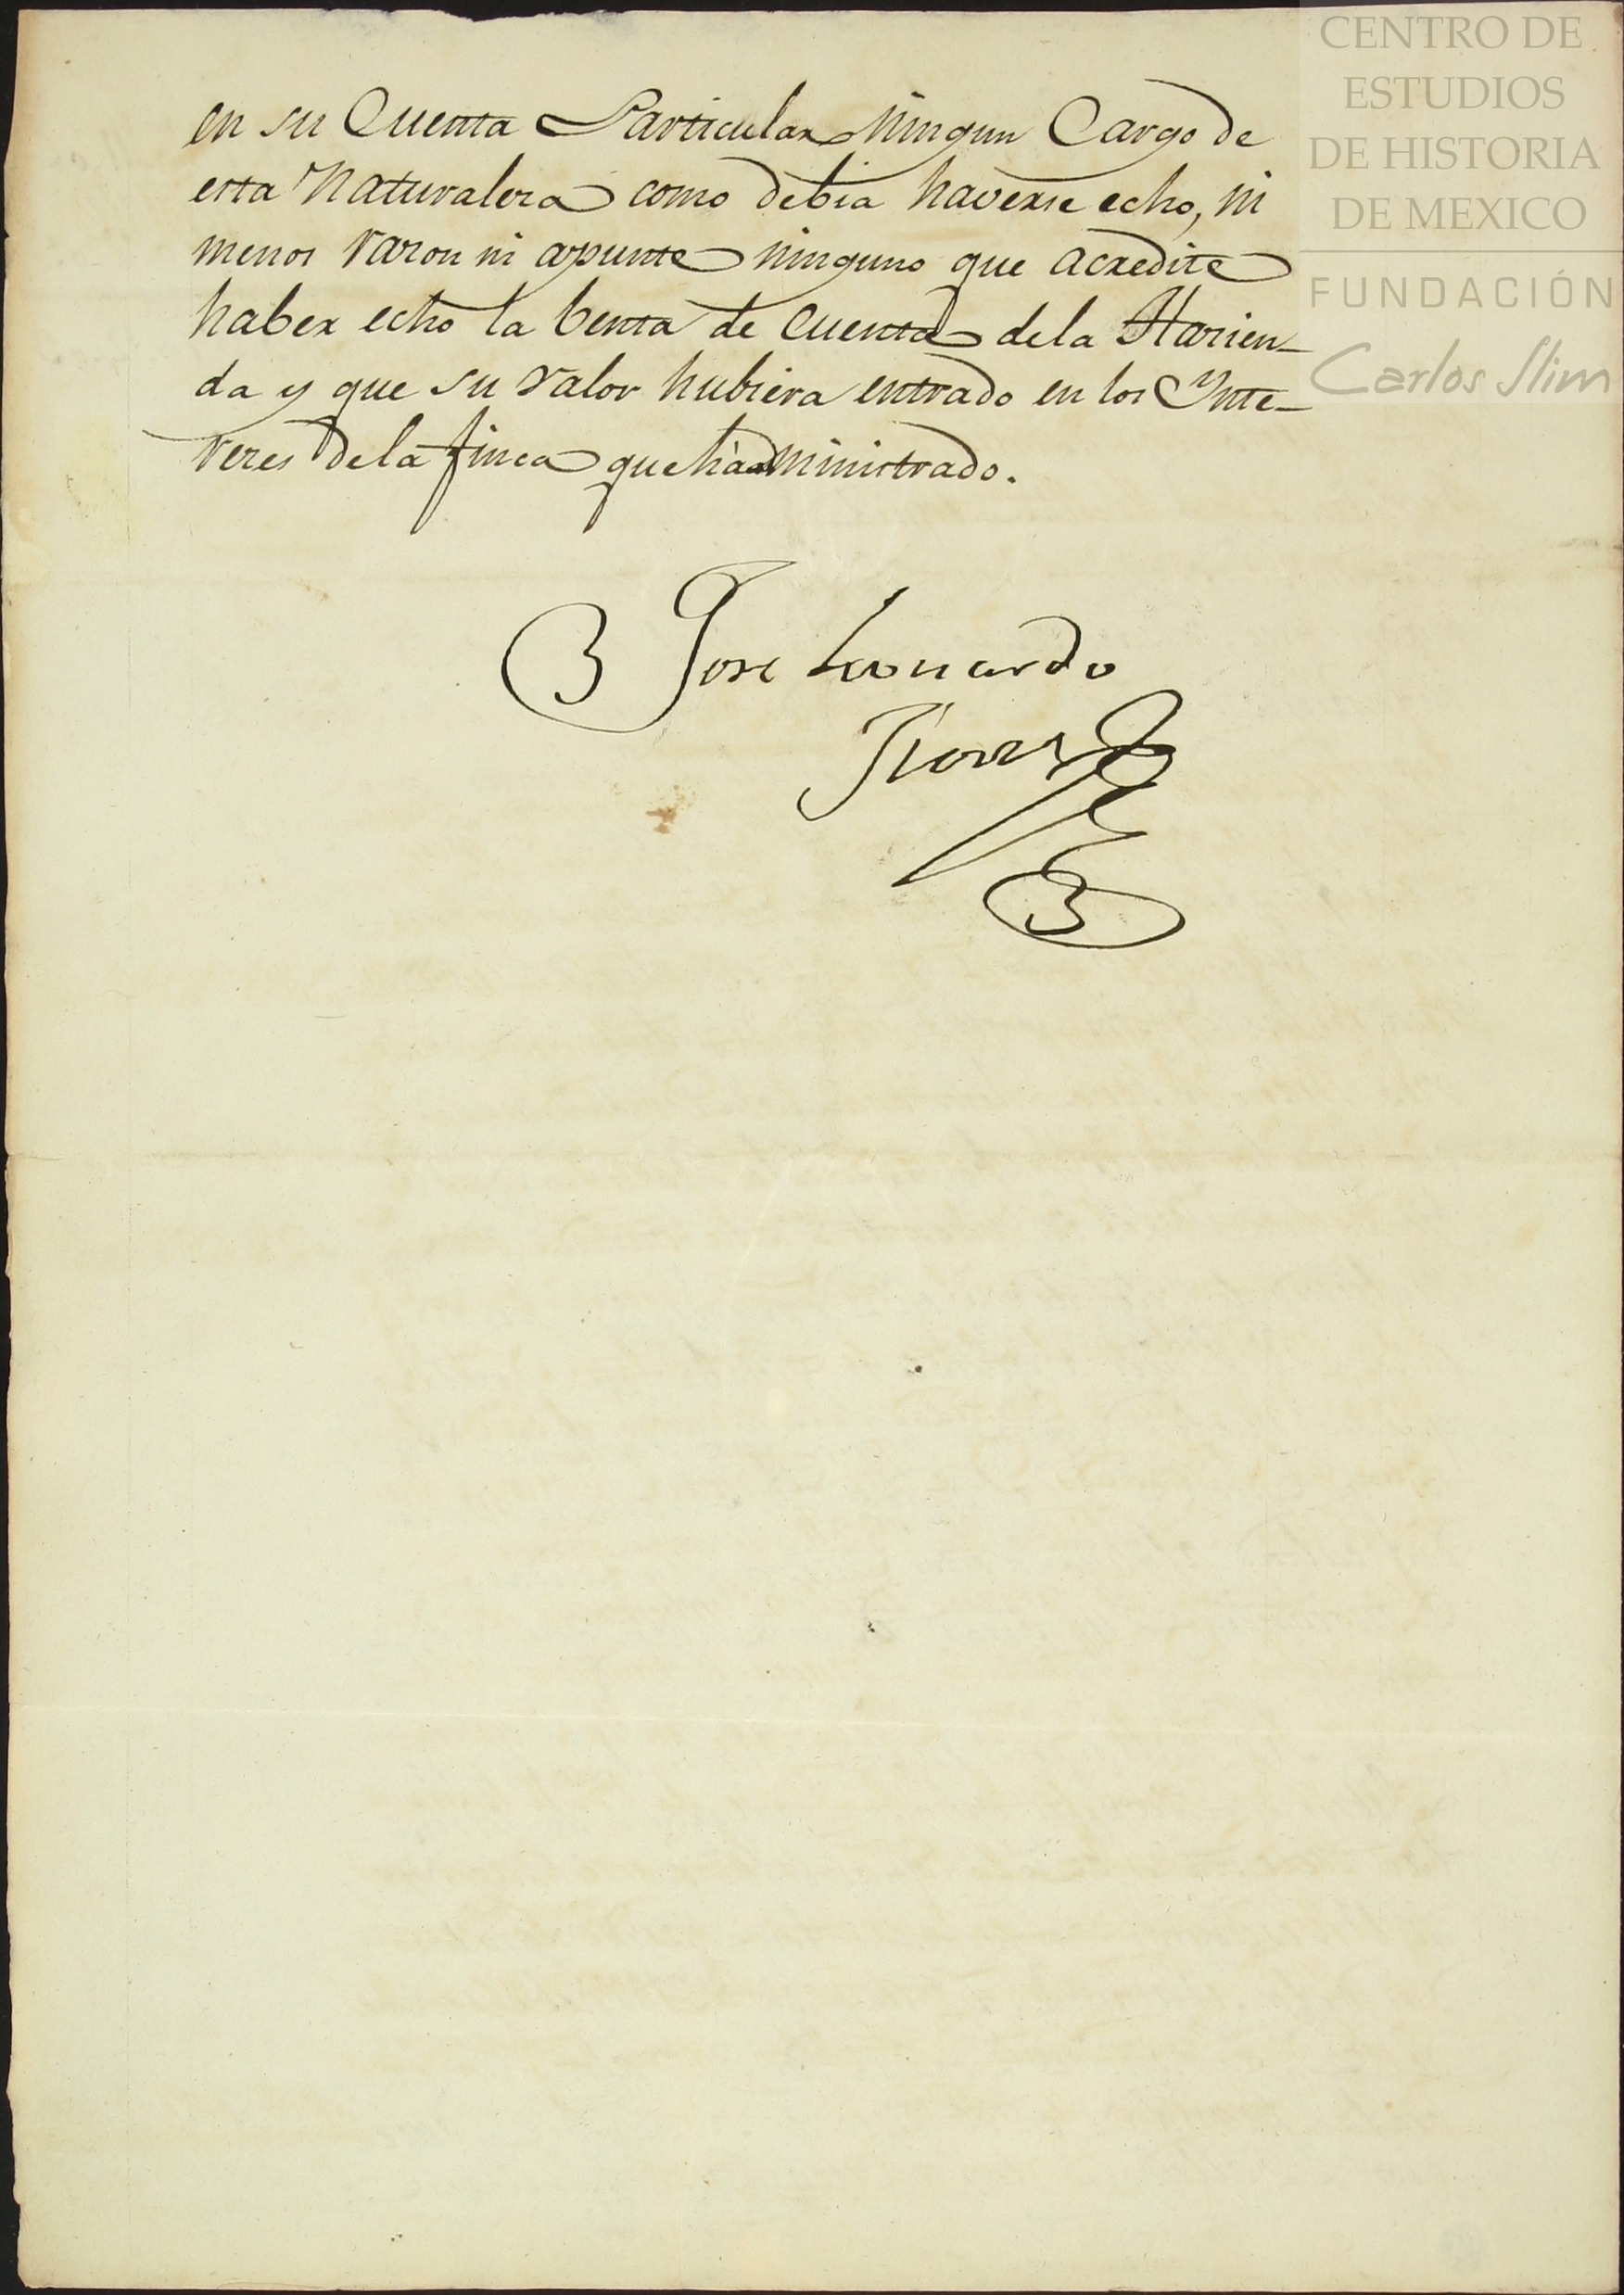 en su Cuenta Particular ningun Cargo de
esta Naturaleza como debia haverse echo, ni
menos razon ni apunte ninguno que acredite
haber echo la benta de cuenta dela Hazien-
da y que su valor hubiera entrado en los Ynte-
reres dela finca que há administrado.
Jose Leonardo
CENTRO DE
ESTUDIOS
DE HISTORIA
DE MEXICO
FUNDACIÓN
Carlos Slim